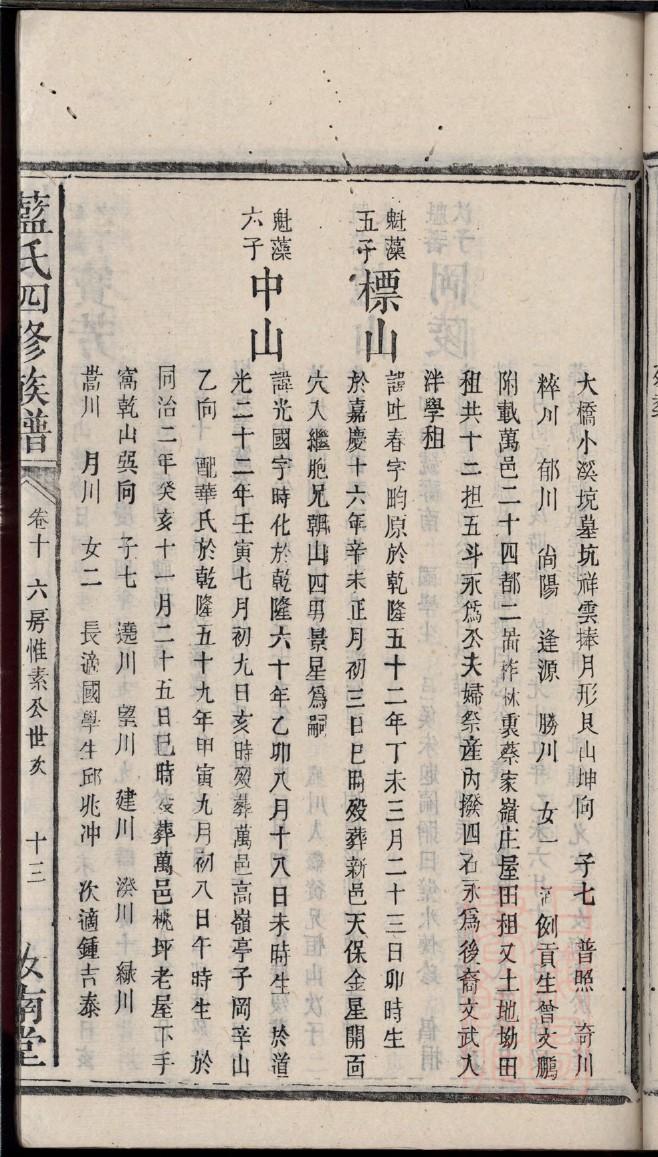 大橋小溪坑墓坑祥雲捧月形艮山坤向 子七 普照 奇川
粹川 郁川 尙陽 逢源 勝川 女一 適例貢生曾文鵬
附載萬邑二十四都二啚柞林裏蔡家嶺庄屋田租又土地坳田
租共十二担五斗永爲公夫婦祭產內撥四石永爲後裔文武入
泮學租
魁藻五子 標山 諱吐春字畇原於乾隆五十二年丁未三月二十三日卯時生
於嘉慶十六年辛未正月初三日巳時歿葬新邑天保金星開面
穴入繼胞兄朝山四男景星爲嗣
魁藻六子 中山 諱光國字時化於乾隆六十年乙卯八月十八日未時生 於道
光二十二年壬寅七月初九日亥時歿葬萬邑高嶺亭子岡辛山
乙向 配華氏於乾隆五十九年甲寅九月初八日午時生 於
同治二年癸亥十一月二十五日巳時歿葬萬邑桃坪老屋下手
窩乾山巽向 子七 遶川 望川 建川 湀川 綠川
嵩川 月川 女二 長適國學生邱兆冲 次適鍾吉泰
藍氏四修族譜 卷十 六房惟素公世次 十三 汝南堂